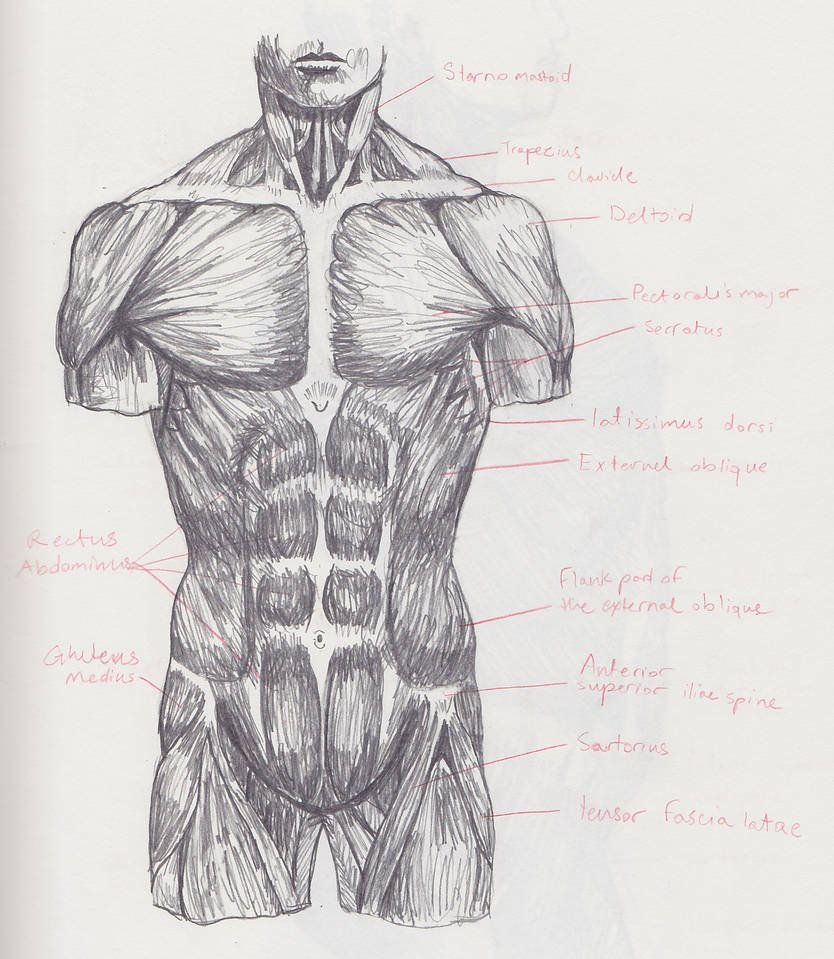 Starno mastoid
Trapezius
clavicle
Deltoid
Pectoralis major
Serratus
latissimus dorsi
External oblique
Rectus
Abdominus
Flank part of
the external oblique
Gluteus
medius
Anterior
superior iliac spine
Sartorius
tensor fascia latae